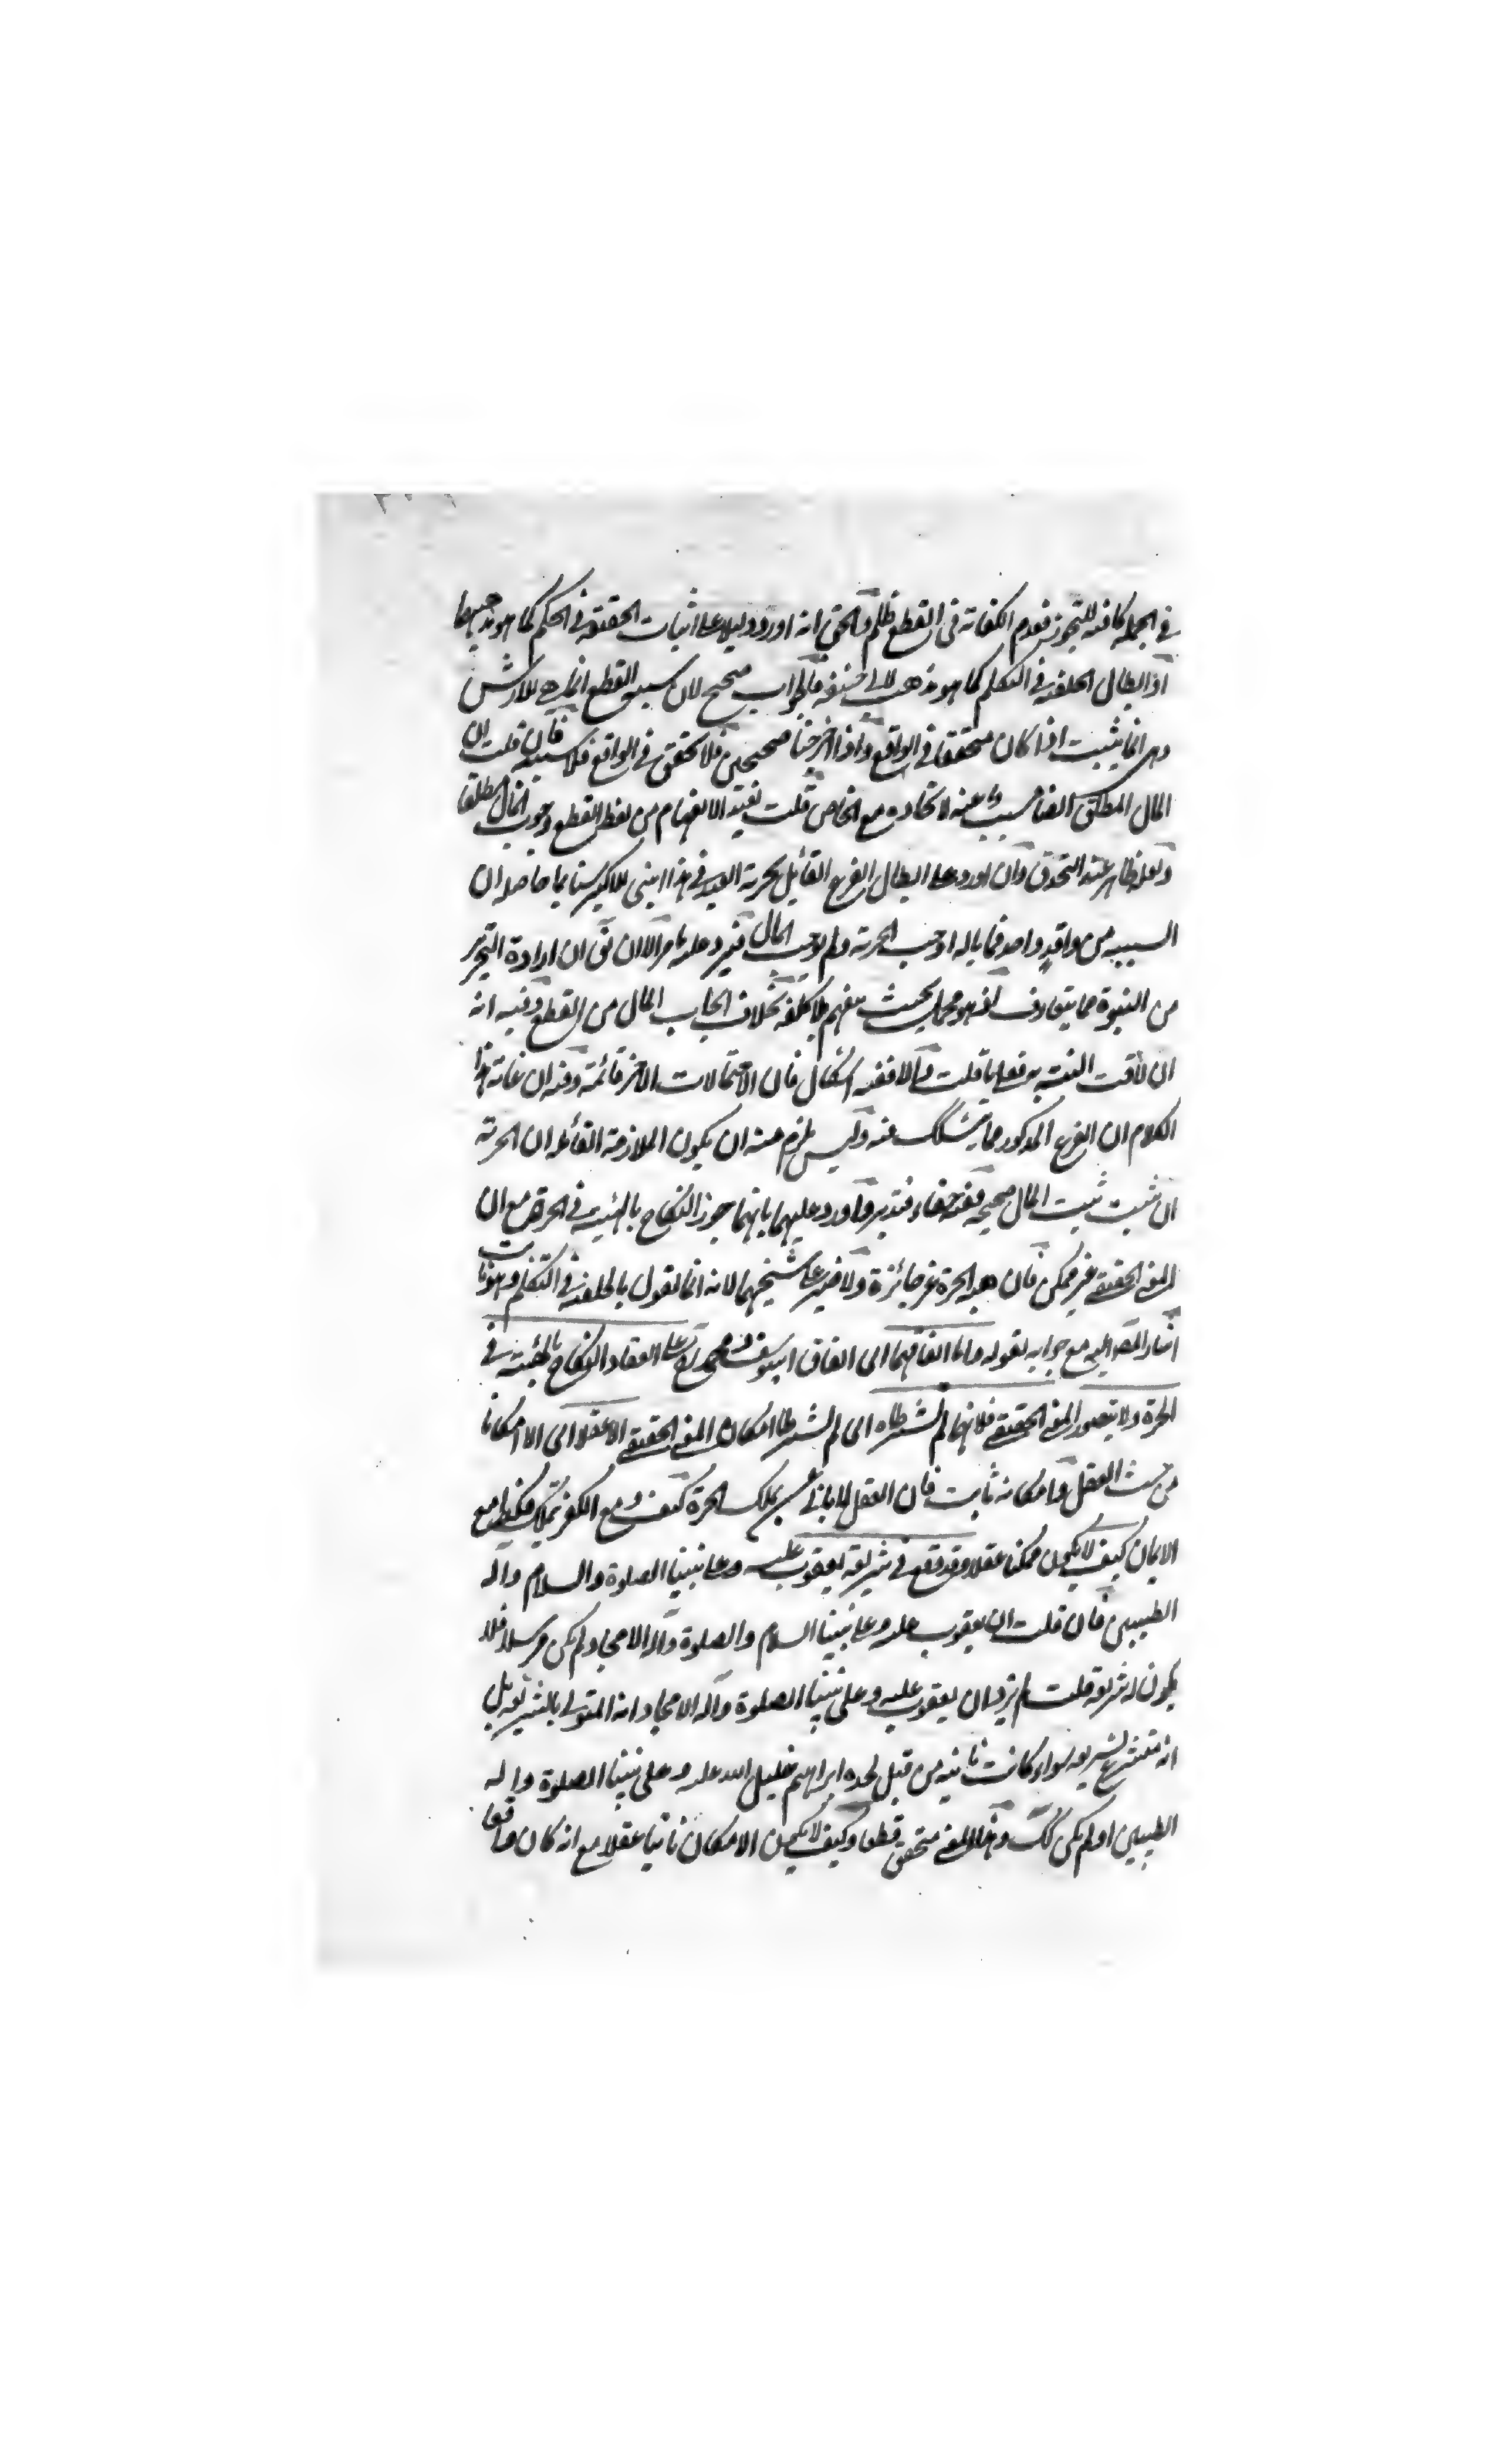 في الجملة كافية للتجوز فعدم الكفاية في القطع ظلم والحق انه اورد دليلا على اثبات الحقيقة في الحكم كما هو مذهبهما
اذ ابطال الخلفية في التكلم كما هو مذهب لابي حنيفة فالجواب صحيح لان سبب القطع انما هو للارش
وهي انما يثبت اذا كان متحققا في الواقع واذا اخرجنا صحيحتين فلا تحقق في الواقع فلا سببية فان قلت ان
المال المطلق ايضا مسبب عنه لاتحاده مع الخاص قلت نفيه الانفهام من لفظ القطع وجوب المال مطلقا
ولعله ظاهر عند التحدق وان اورد على ابطال الفرع القائل بحرية العبد في هذا ابني للاكبر سنا بما حاصله ان
السببية من واقد واحد فما باله اوجب الحرية ولم يوجب المال فيرد عليه ما مر الا ان يق ان ارادة التحرير
من البنوة مما يتعارف اذ هو مجمل بحيث يفهم بلا كلفة بخلاف ايجاب المال من القطع وفيه انه
ان لاقت النية يرتفع ما قلت والا ففيه اشكال فان الاحتمالات الاخر قائمة وفيه ان غاية هذا
الكلام ان الفرع المذكور مما يشكك عنه وليس يلزم منه ان يكون الملازمة القائلة ان الحرية
ان تثبت ثبت المال صحيحة ففيه خفاء فتدبر واورد عليهما بانهما جوزا النكاح بالهبة في الحرة مع ان
المعنى الحقيقي غير ممكن فان هبة الحرة غير جائزة ولا ضير على شيخهما لانه انما يقول بالخلفية في التكلم وهو ثابت
اشار المصـ اليه مع جوابه بقوله واما اتفاقهما اي اتفاق ابيوسف ومحمد رح على انعقاد النكاح بالهبة في
الحرة ولا يتصور المعنى الحقيقي فلانهما لم يشترطاه اي لم يشترطا امكان المعنى الحقيقي الا عقلا اي الا امكانا
من حيث العقل وامكانه ثابت فان العقل لا يابى عن تملك الحرة كيف ومع الكفر تملك فكيف مع
الايمان كيف لا يكون ممكنا عقلا وقد وقع في شريعة يعقوب عليه وعلى نبينا الصلوة والسلام وآله
الطيبين فان قلت ان يعقوب عليه وعلى نبينا السلام والصلوة وآله الامجاد لم يكن مرسلا فلا
يكون له شريعة قلت لم يرد ان يعقوب عليه وعلى نبينا الصلوة وآله الامجاد انه المتولي بالشريعة بل
انه متشرع بشريعة سواء كانت ثابتة من قبل لجده ابراهيم خليل الله عليه وعلى نبينا الصلوة واله
الطيبين او لم يكن كك وهذا المعنى متحقق قطعا وكيف لا يكون الامكان ثابتا عقلا مع انه كان واقعا